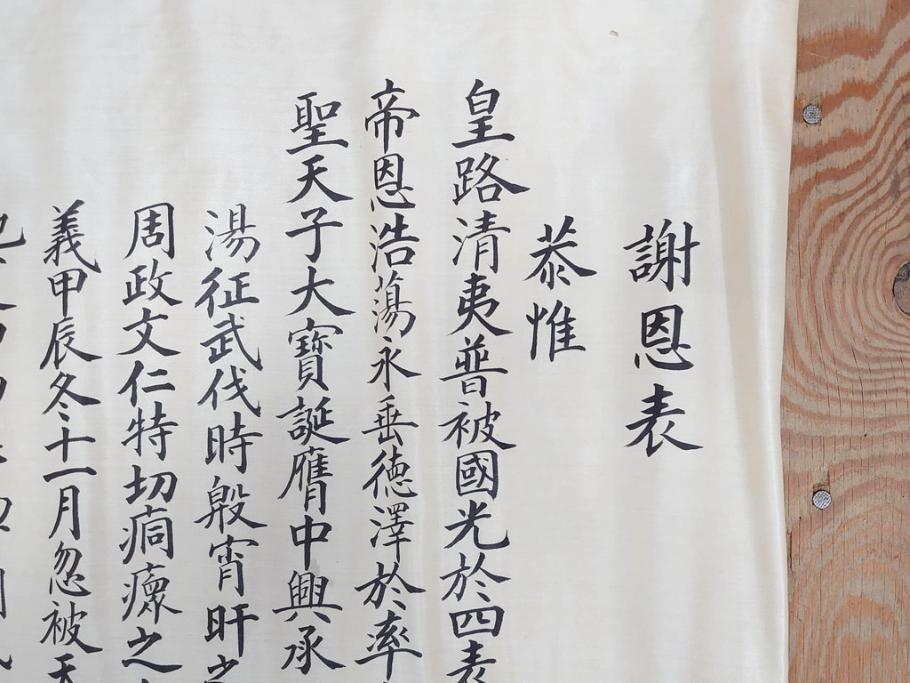 謝恩表
恭惟
皇路清夷普被國光於四表
帝恩浩蕩永垂德澤於率
聖天子大寶誕膺中興承
湯征武伐時殷宵旰之
周政文仁特切痌瘝之
義甲辰冬十一月忽被天